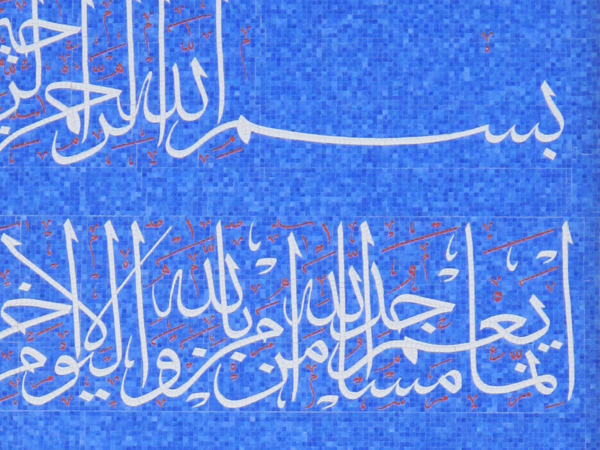 بسم الله الرحمن الرحيم
إنما يعمر مساجد الله من آمن بالله واليوم الآخر